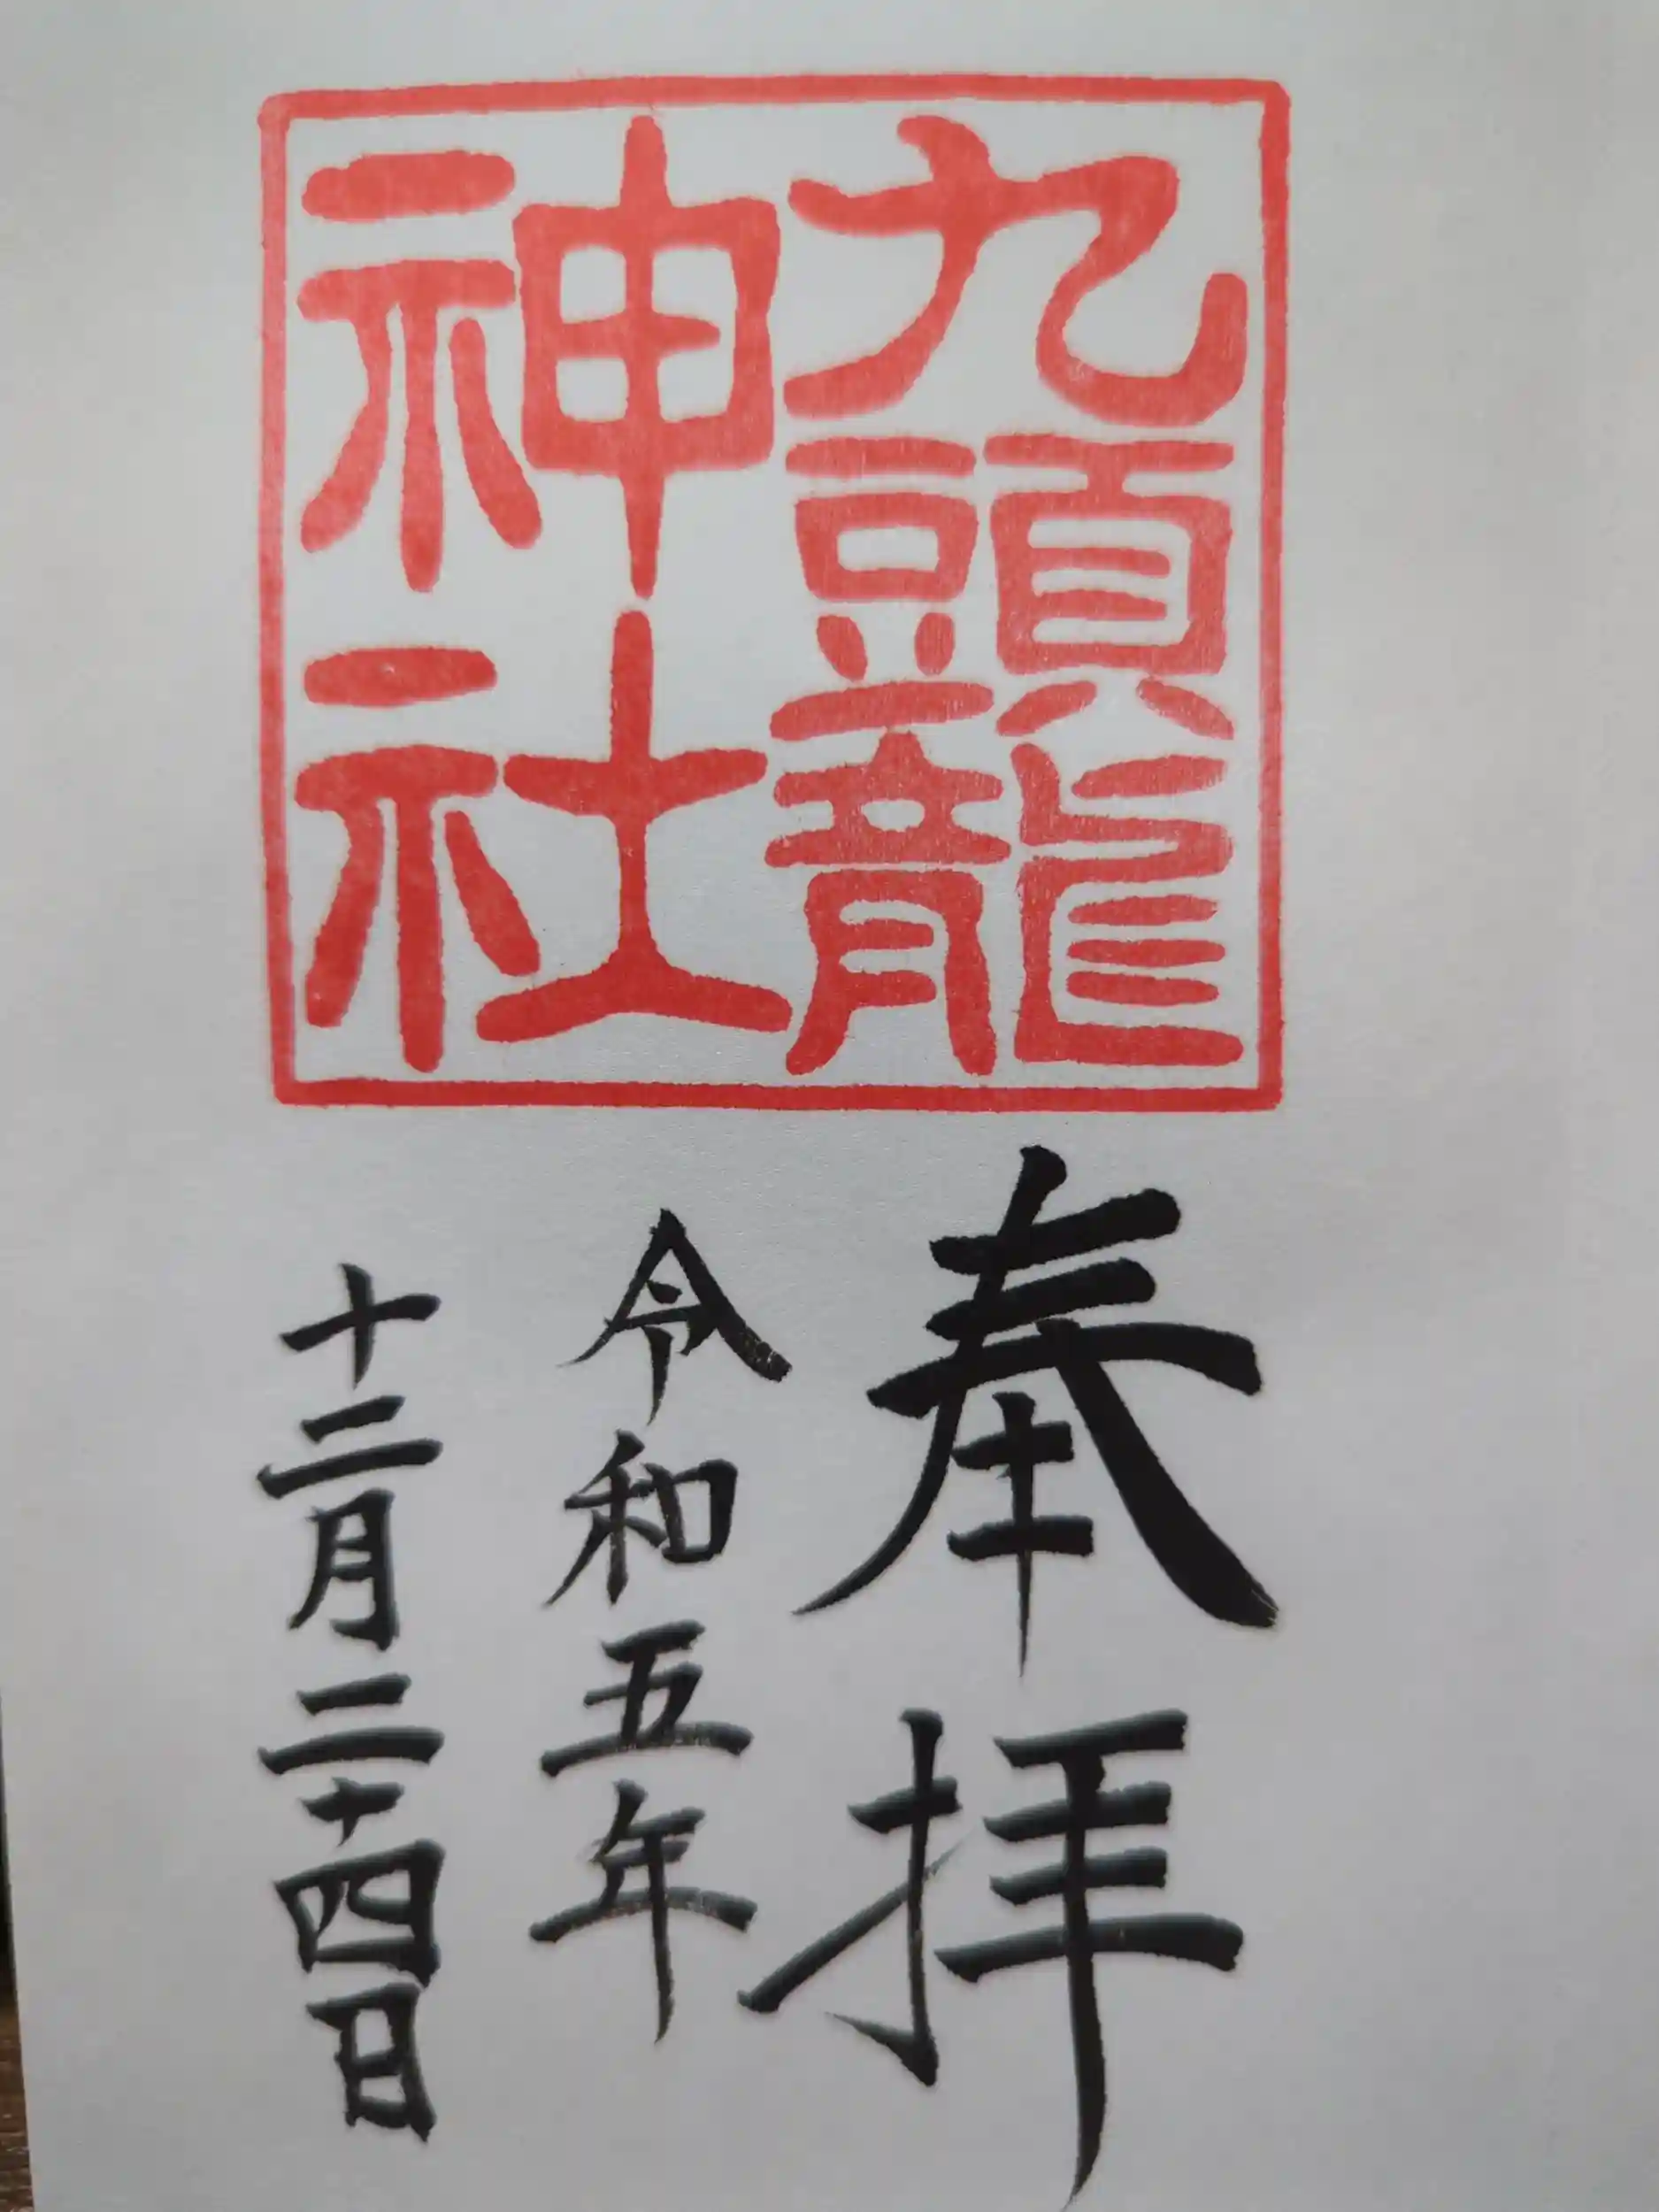 九頭龍
神社
奉拝
令和五年
十二月二十四日